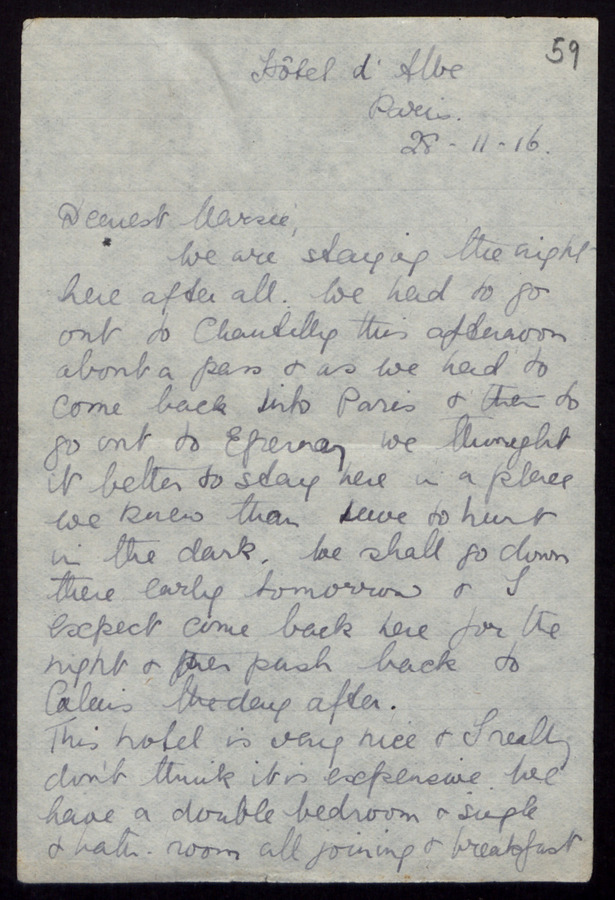 59
Hôtel d' Albe
Paris.
28-11-16.
Dearest Marsie,
We are staying the night
here after all. We had to go
out to Chantilly this afternoon
about a pass & as we had to
come back into Paris & then to
go out to Epernay we thought
it better to stay here in a place
we knew than have to hunt
in the dark. We shall go down
there early tomorrow & I
expect come back here for the
night & then push back to
Calais the day after.
This hotel is very nice & I really
don't think it is expensive we
have a double bedroom & single
& bath-room all joining & breakfast